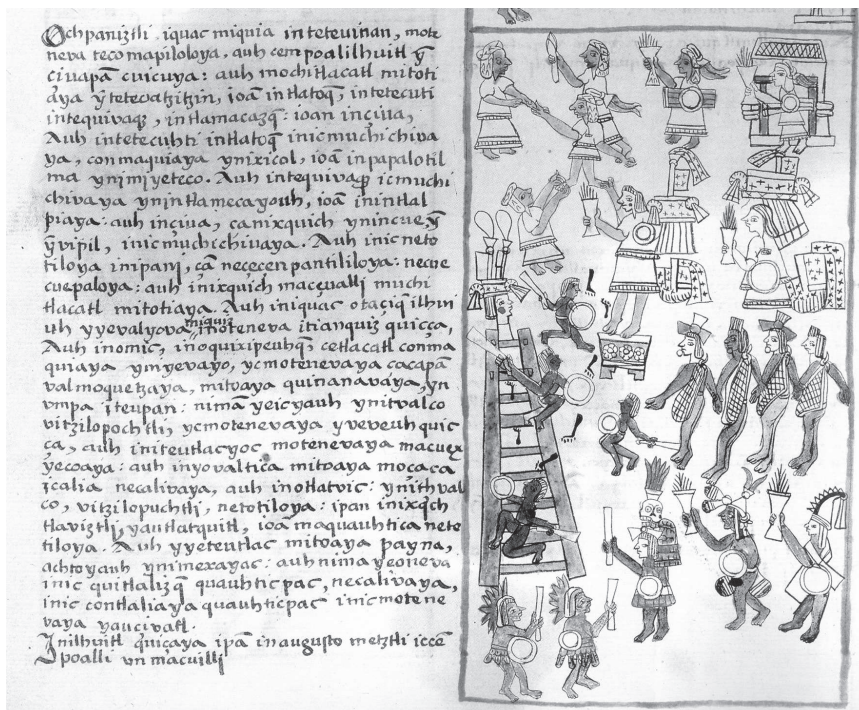 Ochpaniztli, iquac miquia in teteuinan, mote
neva tecomapiloloya, auh cempoalilhuitl ỹ
ciuapā cuicuya: auh mochitlacatl mitoti
aya ỹ teteoatzitzin, ioā in tlatoq̄, in tetecuti
intequivaq̄, in tlamacazq̄: ioan inciua,
Auh intetecuhti intlatoq̄ inic muchichiva
ya, conmaquiaya ynixicol, ioā in papalotil
ma ynimiyeteco. Auh intequivaq̄ ic muchi
chivaya ynintlamecayouh, ioā inintlal
piaya: auh inciua, ca nixquich ynincue, ỹ
ỹ vipil, inic muchichivaya. Auh inic neto
tiloya inipani, çā nececen pantililoya: necue
cuepaloya: auh inixquich maceualli muchi
tlacatl mitotiaya. Auh iniquac otaciq̄ ilhui
uh yyevalyova, miquiz moteneva itianquiz quicça,
Auh inomic, inoquixipeuhq̄ ce tlacatl conma
quiaya ynyevayo, ycmotenevaya cacapā
valmoquetzaya, mitvaya quinanavaya, yn
vmpa iteupan: nimā yeic yauh ynitvalco
vitzilopochtli, ycmotenevaya yveveuhquiç
ça, auh initeutlacyoc motenevaya macuex
yecoaya: auh inyovaltica mitoaya moçaca
icalia necalivaya, auh inotlatvic: ynithval
co, vitzilopuchtli, netotiloya: ipan inixq̄ch
tlaviztli, yautlatquitl, ioā maquauhtica neto
tiloya. Auh yyeteutlac mitoaya payna,
achtoyauh ynimexayac: auh nima yeoneva
inic quitlalizq̄ quauhticpac, necalivaya,
inic contlaliaya quauhticpac inic motene
vaya yauciuatl.
Inilhuitl quiçaya ipā in augusto metztli iccē
poalli vn macuilli